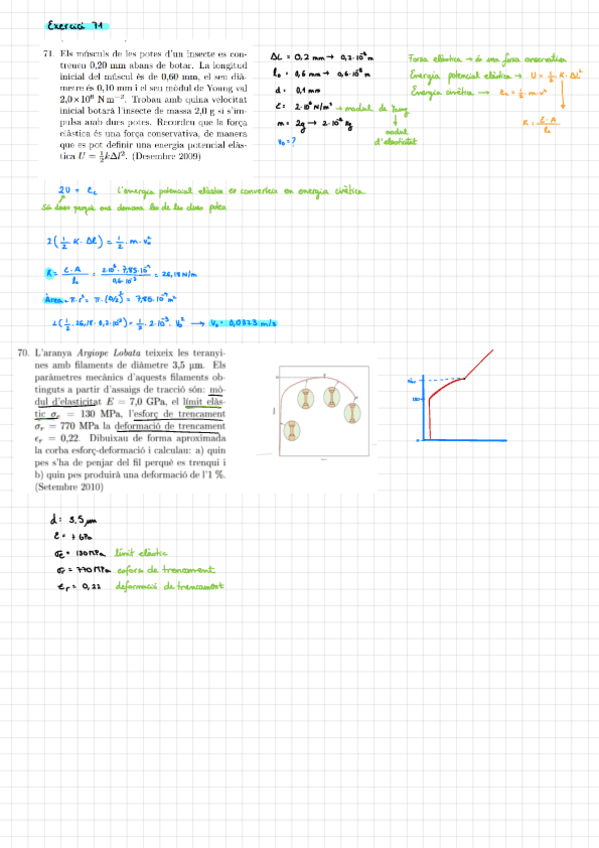 Exercici 71
71. Els músculs de les potes d'un insecte es con-
treuen 0,20 mm abans de botar. La longitud
inicial del múscul és de 0,60 mm, el seu dià-
metre és 0,10 mm i el seu mòdul de Young val
2,0×10⁶ N m⁻². Trobau amb quina velocitat
inicial botarà l'insecte de massa 2,0 g si s'im-
pulsa amb dues potes. Recordeu que la força
elàstica és una força conservativa, de manera
que es pot definir una energia potencial elàs-
tica U = ½kΔl². (Desembre 2009)
ΔL = 0,2 mm → 0,2·10⁻³ m
l₀ = 0,6 mm → 0,6·10⁻³ m
d = 0,1 mm
E = 2·10⁶ N/m² → modul de Young
m = 2g → 2·10⁻³ kg
modul
d'elasticitat
v₀ = ?
Força elàstica → és una força conservativa
Energia potencial elàstica → U = ½·K·ΔL²
Energia cinètica → Ec = ½·m·v²
K = E·A / l₀
2U = Ec
l'energia potencial elàstica es converteix en energia cinètica
2(½·K·Δl) = ½·m·v₀²
K = E·A / l₀ = 2·10⁶·7,85·10⁻⁹ / 0,6·10⁻³ = 26,18 N/m
2(½·26,18·0,2·10⁻³) = ½·2·10⁻³·v₀² → v₀ = 0,0323 m/s
70. L'aranya Argiope Lobata teixeix les teranyi-
nes amb filaments de diàmetre 3,5 μm. Els
paràmetres mecànics d'aquests filaments ob-
tinguts a partir d'assaigs de tracció són: mò-
dul d'elasticitat E = 7,0 GPa, el límit elàs-
tic σₑ = 130 MPa, l'esforç de trencament
σᵣ = 770 MPa la deformació de trencament
ϵᵣ = 0,22. Dibuixau de forma aproximada
la corba esforç-deformació i calculau: a) quin
pes s'ha de penjar del fil perquè es trenqui i
b) quin pes produirà una deformació de l'1 %.
(Setembre 2010)
d = 3,5 μm
E = 7 GPa
σE = 130 MPa límit elàstic
σr = 770 MPa esforç de trencament
Er = 0,22 deformació de trencament